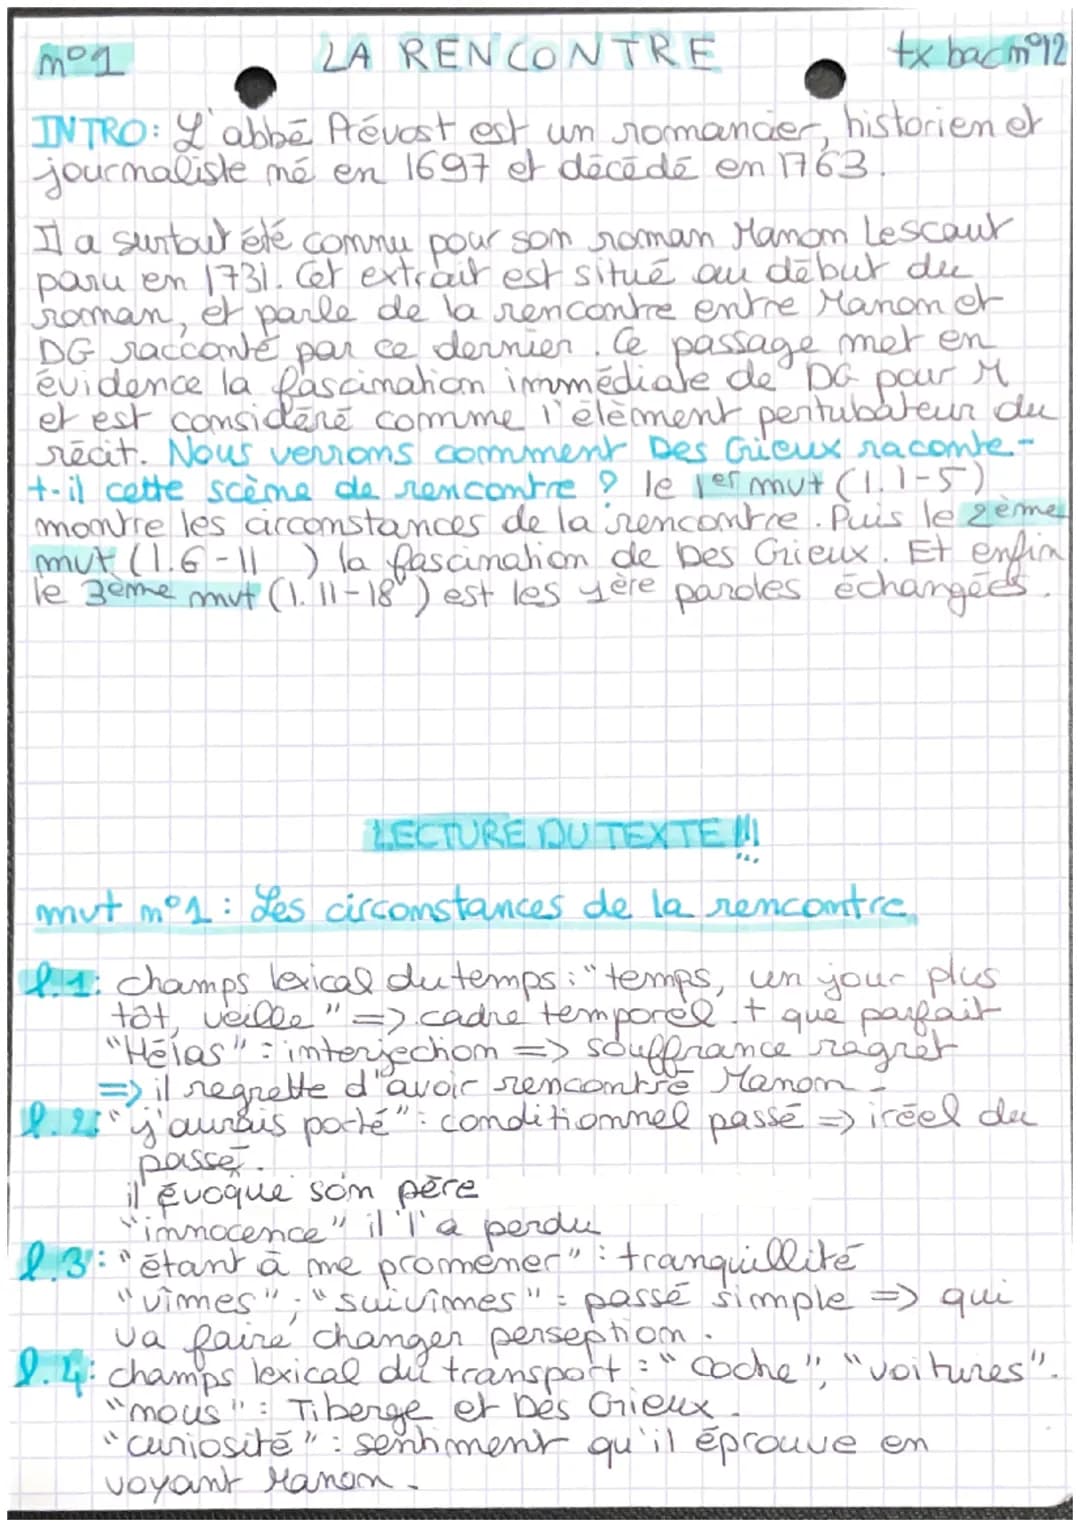 n°1 LA RENCONTRE tx bac n°12
INTRO: L'abbé Prévost est un romancier, historien et
journaliste né en 1697 et décédé en 1763.
Il a surtout été connu pour son roman Manon Lescaut
paru en 1731. Cet extrait est situé au début du
roman, et parle de la rencontre entre Manon et
DG racconté par ce dernier. Ce passage met en
évidence la fascination immédiate de DG pour M
et est considéré comme l'élément pertubateur du
récit. Nous verrons comment Des Grieux raconte-
t-il cette scène de rencontre ? le 1er mvt (l.1-5)
montre les circonstances de la rencontre. Puis le 2ème
mvt (l.6-11 ) la fascination de Des Grieux. Et enfin
le 3ème mvt (l.11-18 ) est les 1ère paroles échangées.
LECTURE DU TEXTE !!!
mvt n°1 : Les circonstances de la rencontre
l.1: champs lexical du temps : "temps, un jour plus
tôt, veille" => cadre temporel + que parfait
"Hélas" : interjection => souffrance regret
=> il regrette d'avoir rencontré Manon.
l.2: "j'aurais porté" : conditionnel passé => iréel du
passé.
il évoque son père
"innocence" il l'a perdu
l.3: "étant à me promener" : tranquillité
"vîmes" ; "suivîmes" : passé simple => qui
va faire changer perseption.
l.4: champs lexical du transport : "coche", "voitures".
"nous" : Tiberge et Des Grieux.
"curiosité" : sentiment qu'il éprouve en
voyant Manon.